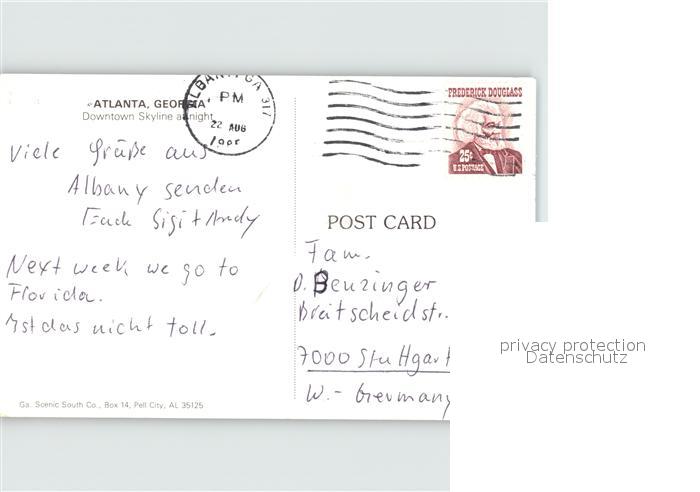 ATLANTA, GEORGIA
Downtown Skyline at night
ALBANY, GA 317
PM
22 AUG
FREDERICK DOUGLASS
25¢
U.S. POSTAGE
Viele Grüße aus
Albany senden
Euch Sigi + Andy
Next week we go to
Florida.
Ist das nicht toll.
POST CARD
Fam.
D. Benzinger
Breitscheidstr.
7000 Stuttgart
W.- Germany
privacy protection
Datenschutz
Ga. Scenic South Co., Box 14, Pell City, AL 35125